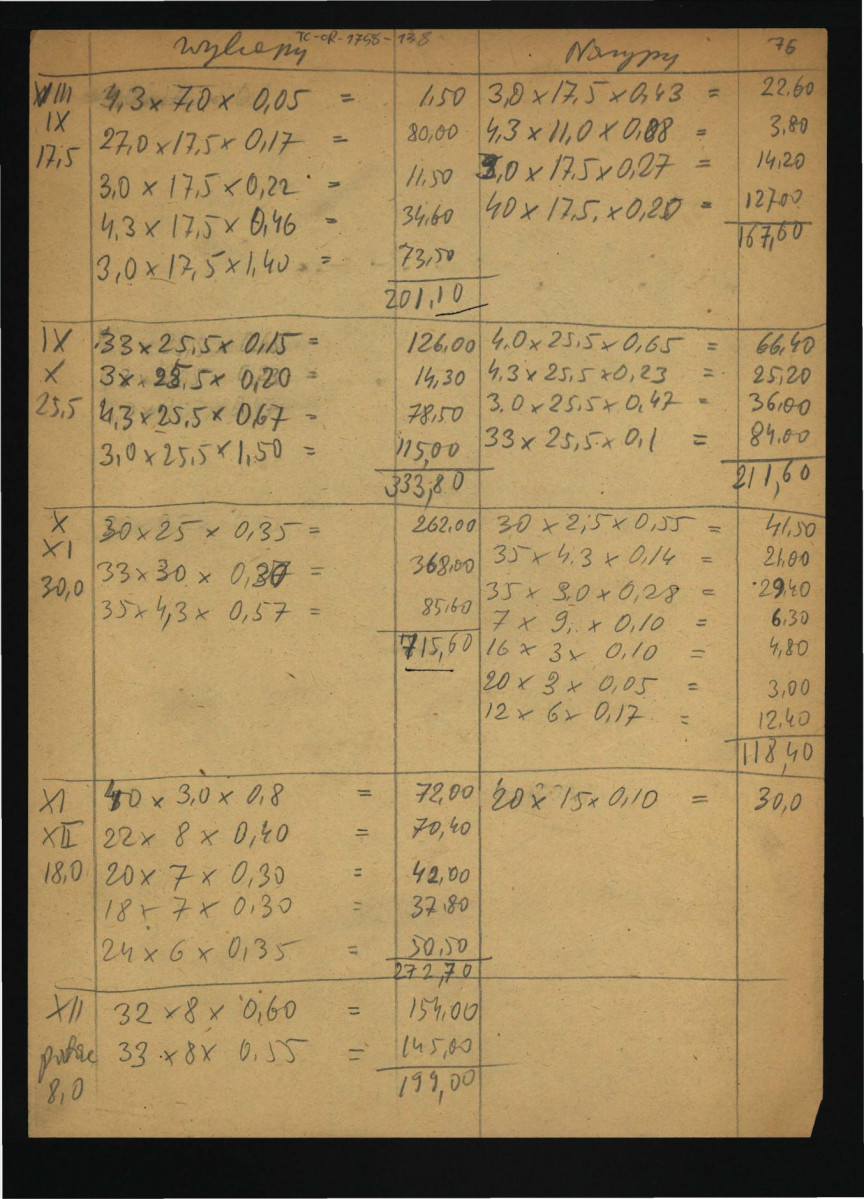 Wykopy TC-OR-1758-138 Nasypy 76
XVIII 4,3 x 7,0 x 0,05 = 1,50 3,0 x 17,5 x 0,43 = 22,60
IX 27,0 x 17,5 x 0,17 = 80,00 4,3 x 11,0 x 0,08 = 3,80
17,5 3,0 x 17,5 x 0,22 = 11,50 3,0 x 17,5 x 0,27 = 14,20
4,3 x 17,5 x 0,46 = 34,60 40 x 17,5 x 0,20 = 127,00
3,0 x 17,5 x 1,40 = 73,50 167,60
201,10
IX 33 x 25,5 x 0,15 = 126,00 4,0 x 25,5 x 0,65 = 66,40
X 3 x 25,5 x 0,20 = 14,30 4,3 x 25,5 x 0,23 = 25,20
25,5 4,3 x 25,5 x 0,67 = 78,50 3,0 x 25,5 x 0,47 = 36,00
3,0 x 25,5 x 1,50 = 115,00 33 x 25,5 x 0,1 = 84,00
333,80 211,60
X 30 x 25 x 0,35 = 262,00 30 x 2,5 x 0,55 = 41,50
XI 33 x 30 x 0,37 = 368,00 35 x 4,3 x 0,14 = 21,00
30,0 35 x 4,3 x 0,57 = 85,60 35 x 3,0 x 0,28 = 29,40
7 x 9, x 0,10 = 6,30
715,60 16 x 3 x 0,10 = 4,80
20 x 3 x 0,05 = 3,00
12 x 6 x 0,17 = 12,40
118,40
XI 40 x 3,0 x 0,8 = 72,00 20 x 15 x 0,10 = 30,0
XII 22 x 8 x 0,40 = 70,40
18,0 20 x 7 x 0,30 = 42,00
18 x 7 x 0,30 = 37,80
24 x 6 x 0,35 = 50,50
272,70
XII 32 x 8 x 0,60 = 154,00
33 x 8 x 0,55 = 145,00
8,0 199,00